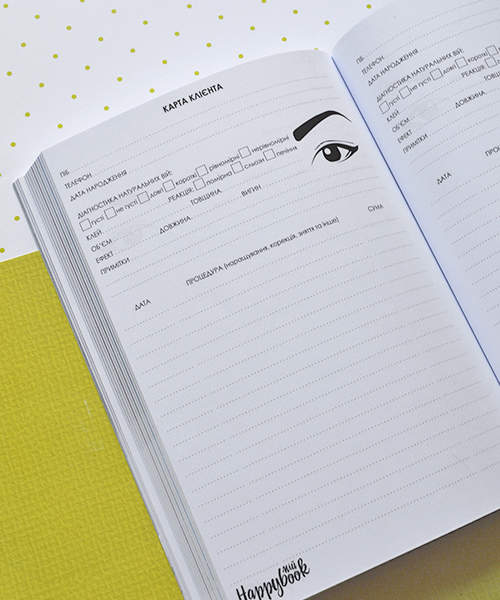 КАРТА КЛІЄНТА
ПІБ
ТЕЛЕФОН
ДАТА НАРОДЖЕННЯ
ДІАГНОСТИКА НАТУРАЛЬНИХ ВІЙ:
густі не густі довгі короткі рівномірні нерівномірні
КЛЕЙ РЕАКЦІЯ: помірна сльози печіння
ОБ'ЄМ ДОВЖИНА ТОВЩИНА ВИГИН
ЕФЕКТ
ПРИМІТКИ
ДАТА ПРОЦЕДУРА (нарощування, корекція, зняття та інше) СУМА
Мій
Happybook
ПІБ
ТЕЛЕФОН
ДАТА НАРОДЖЕННЯ
ДІАГНОСТИКА НАТУРАЛЬНИХ ВІЙ:
густі не густі довгі короткі
КЛЕЙ
ОБ'ЄМ ДОВЖИНА
ЕФЕКТ
ПРИМІТКИ
ДАТА